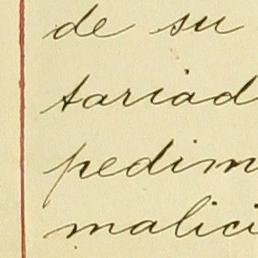 de su
tariad
pedim
malici